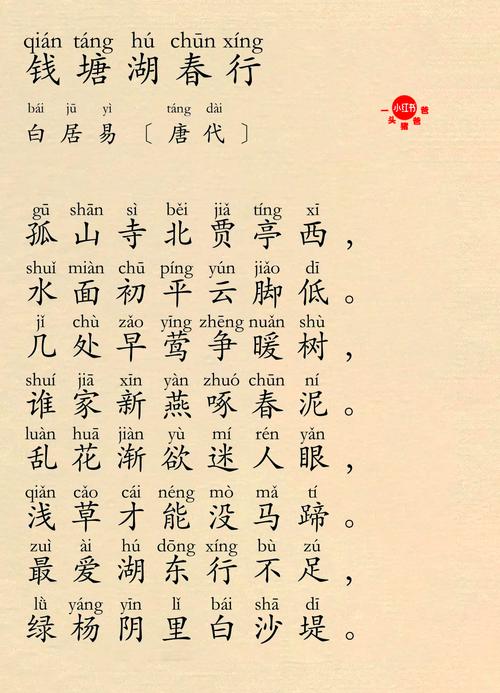 qián táng hú chūn xíng
钱塘湖春行
bái jū yì táng dài
白居易〔唐代〕
小红书
一头猪爸爸
gū shān sì běi jiǎ tíng xī
孤山寺北贾亭西，
shuǐ miàn chū píng yún jiǎo dī
水面初平云脚低。
jǐ chù zǎo yīng zhēng nuǎn shù
几处早莺争暖树，
shuí jiā xīn yàn zhuó chūn ní
谁家新燕啄春泥。
luàn huā jiàn yù mí rén yǎn
乱花渐欲迷人眼，
qiǎn cǎo cái néng mò mǎ tí
浅草才能没马蹄。
zuì ài hú dōng xíng bù zú
最爱湖东行不足，
lǜ yáng yīn lǐ bái shā dī
绿杨阴里白沙堤。